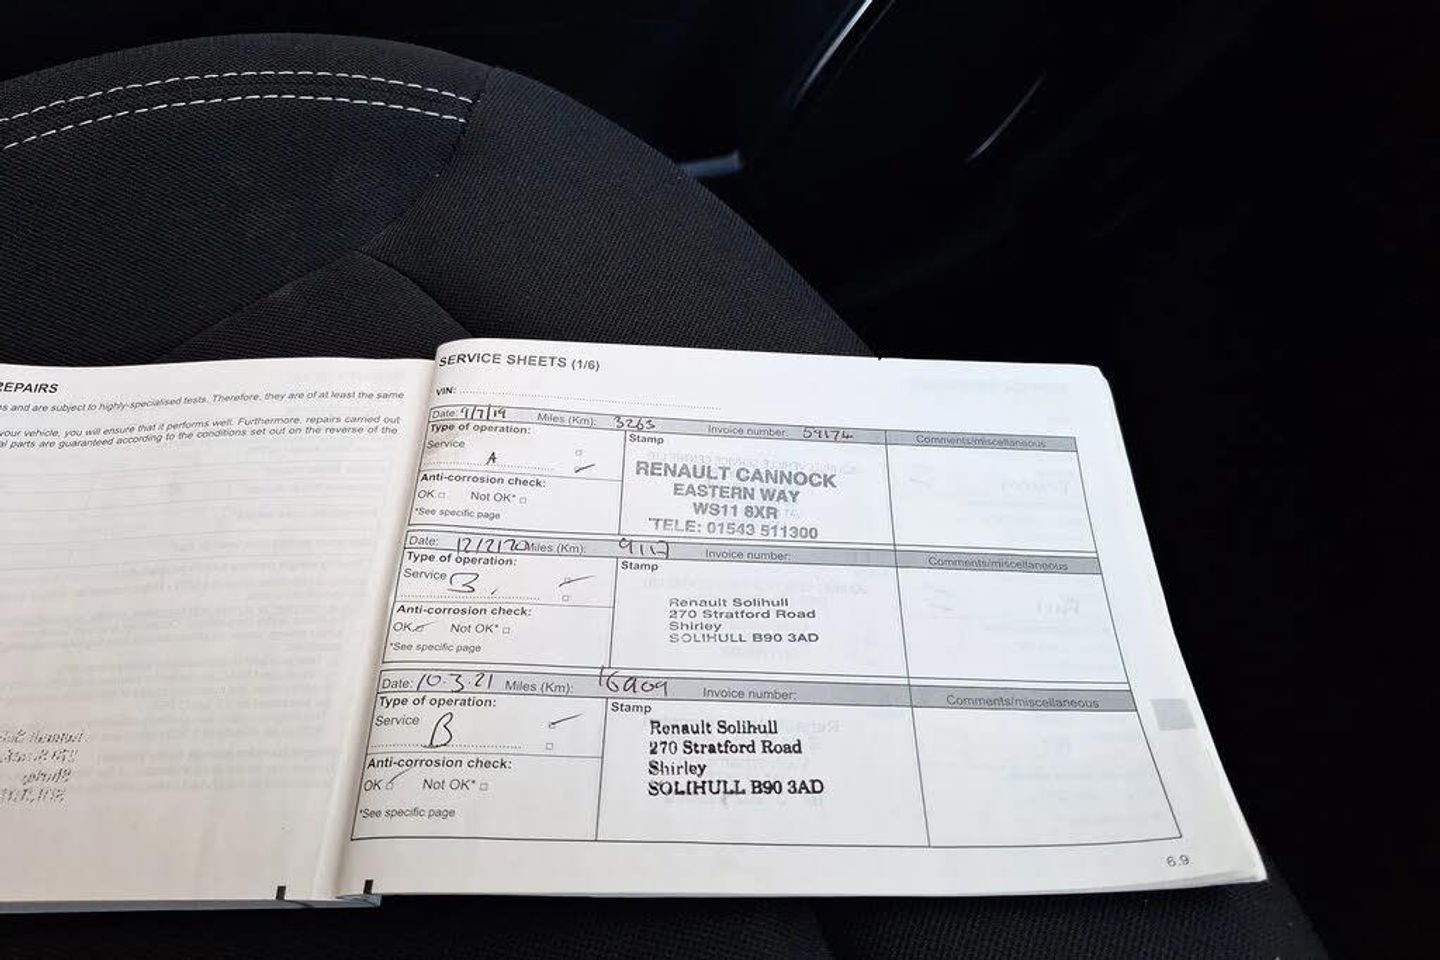 REPAIRS
s and are subject to highly-specialised tests. Therefore, they are of at least the same
your vehicle, you will ensure that it performs well. Furthermore, repairs carried out
al parts are guaranteed according to the conditions set out on the reverse of the
SERVICE SHEETS (1/6)
VIN:
Date: 9/7/19 Miles (Km): 3263 Invoice number: 59174 Comments/miscellaneous
Type of operation:
Service
A
Anti-corrosion check:
OK Not OK*
*See specific page
Stamp
RENAULT CANNOCK
EASTERN WAY
WS11 8XR
TELE: 01543 511300
Date: 12/2/20 Miles (Km): 9117 Invoice number: Comments/miscellaneous
Type of operation:
Service B
Anti-corrosion check:
OK Not OK*
*See specific page
Stamp
Renault Solihull
270 Stratford Road
Shirley
SOLIHULL B90 3AD
Date: 10.3.21 Miles (Km): 16909 Invoice number: Comments/miscellaneous
Type of operation:
Service B
Anti-corrosion check:
OK Not OK*
*See specific page
Stamp
Renault Solihull
270 Stratford Road
Shirley
SOLIHULL B90 3AD
6.9